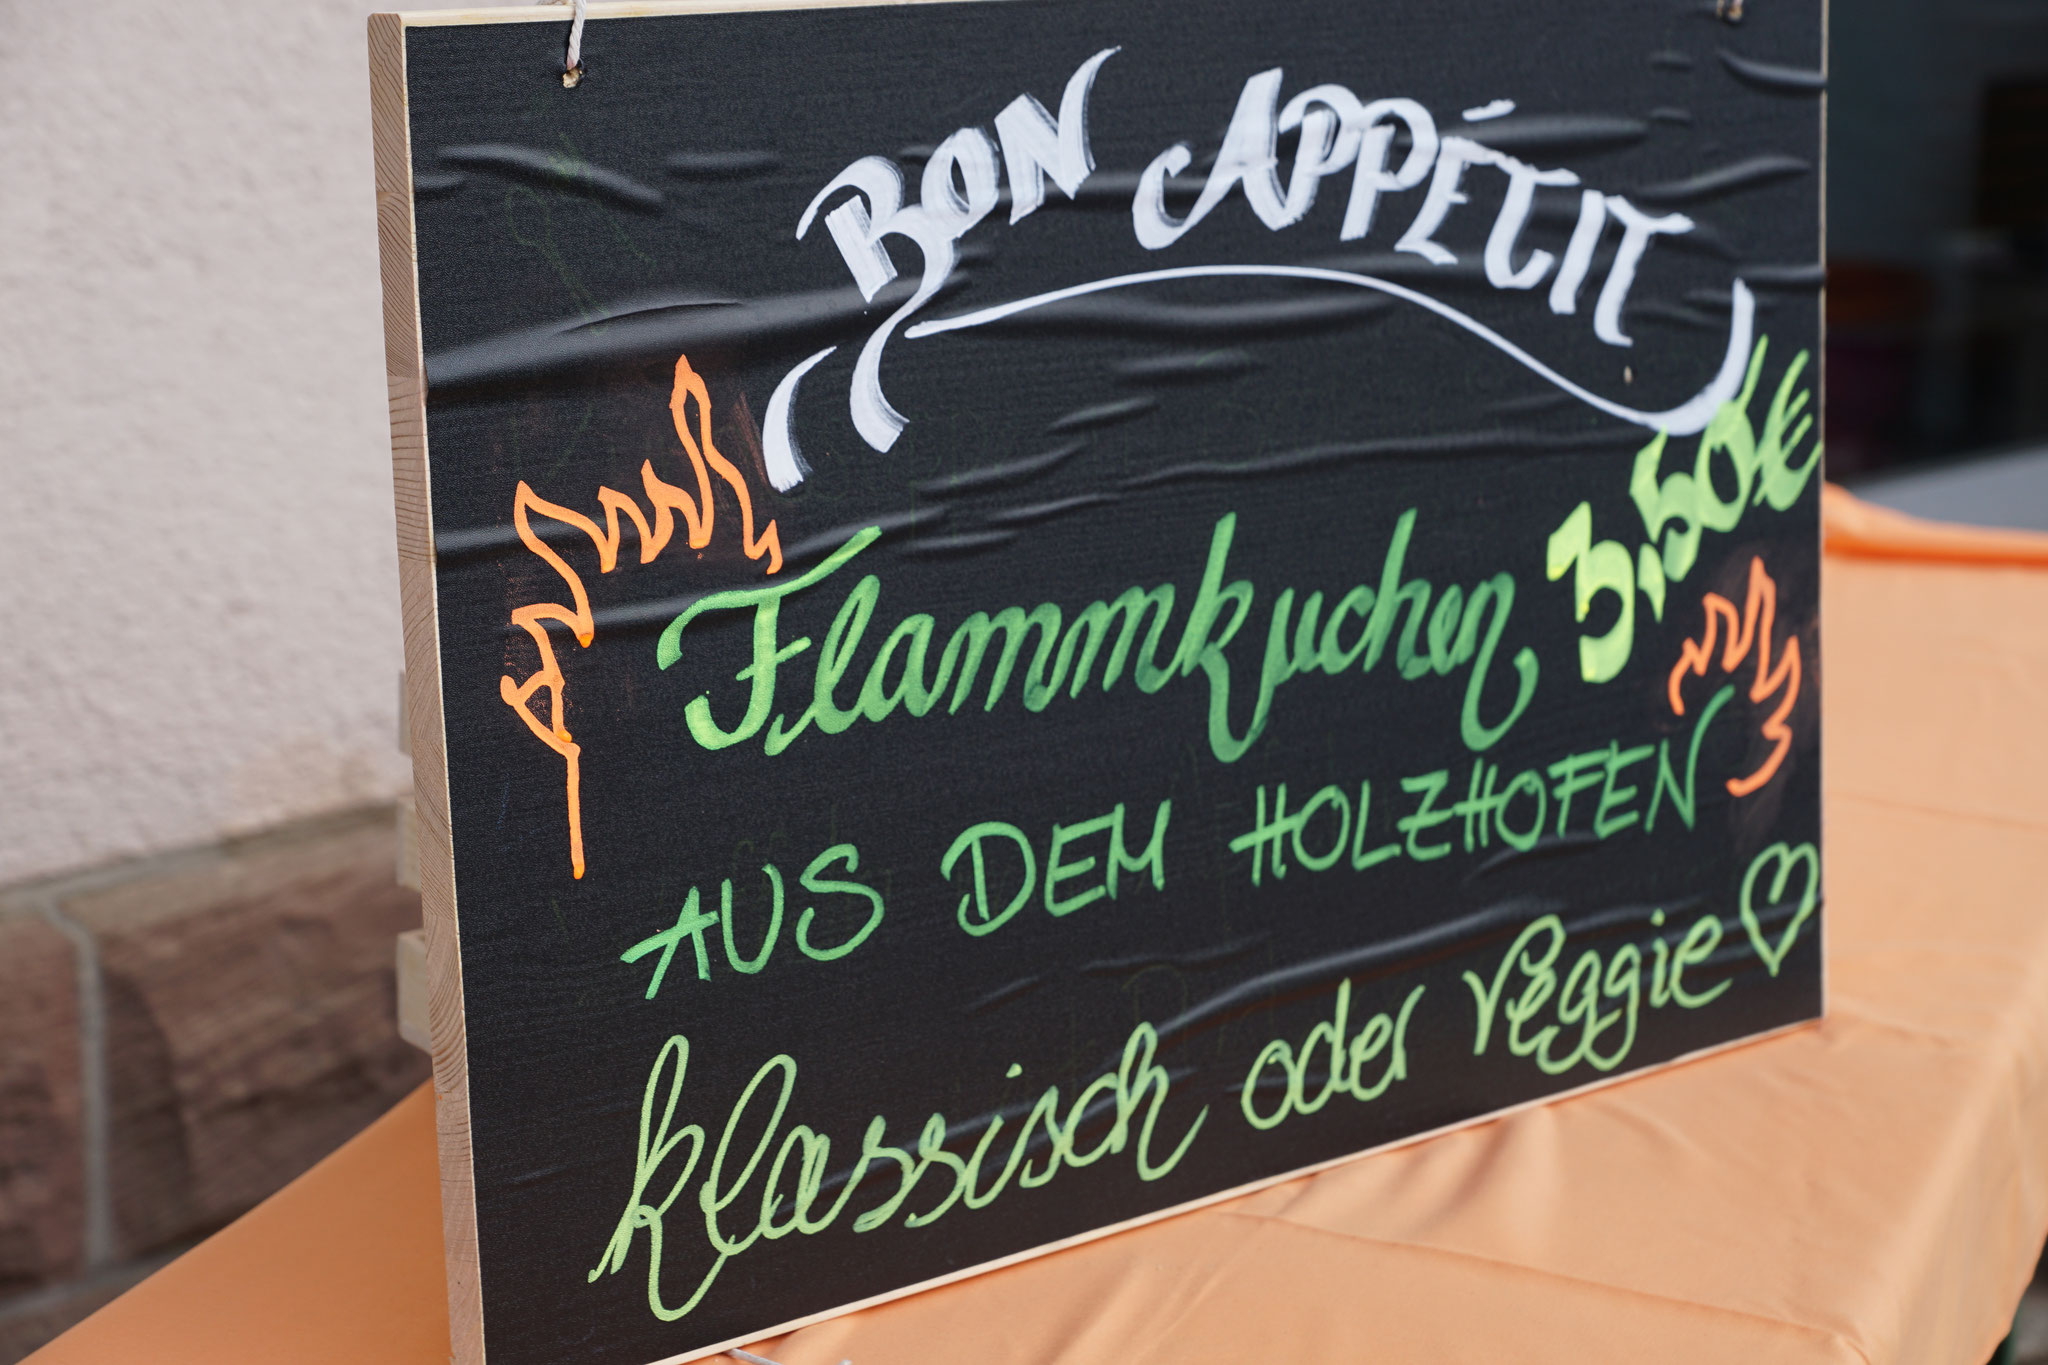 BON APPÉTIT
Flammkuchen 3,50€
AUS DEM HOLZHOFEN
klassisch oder Veggie